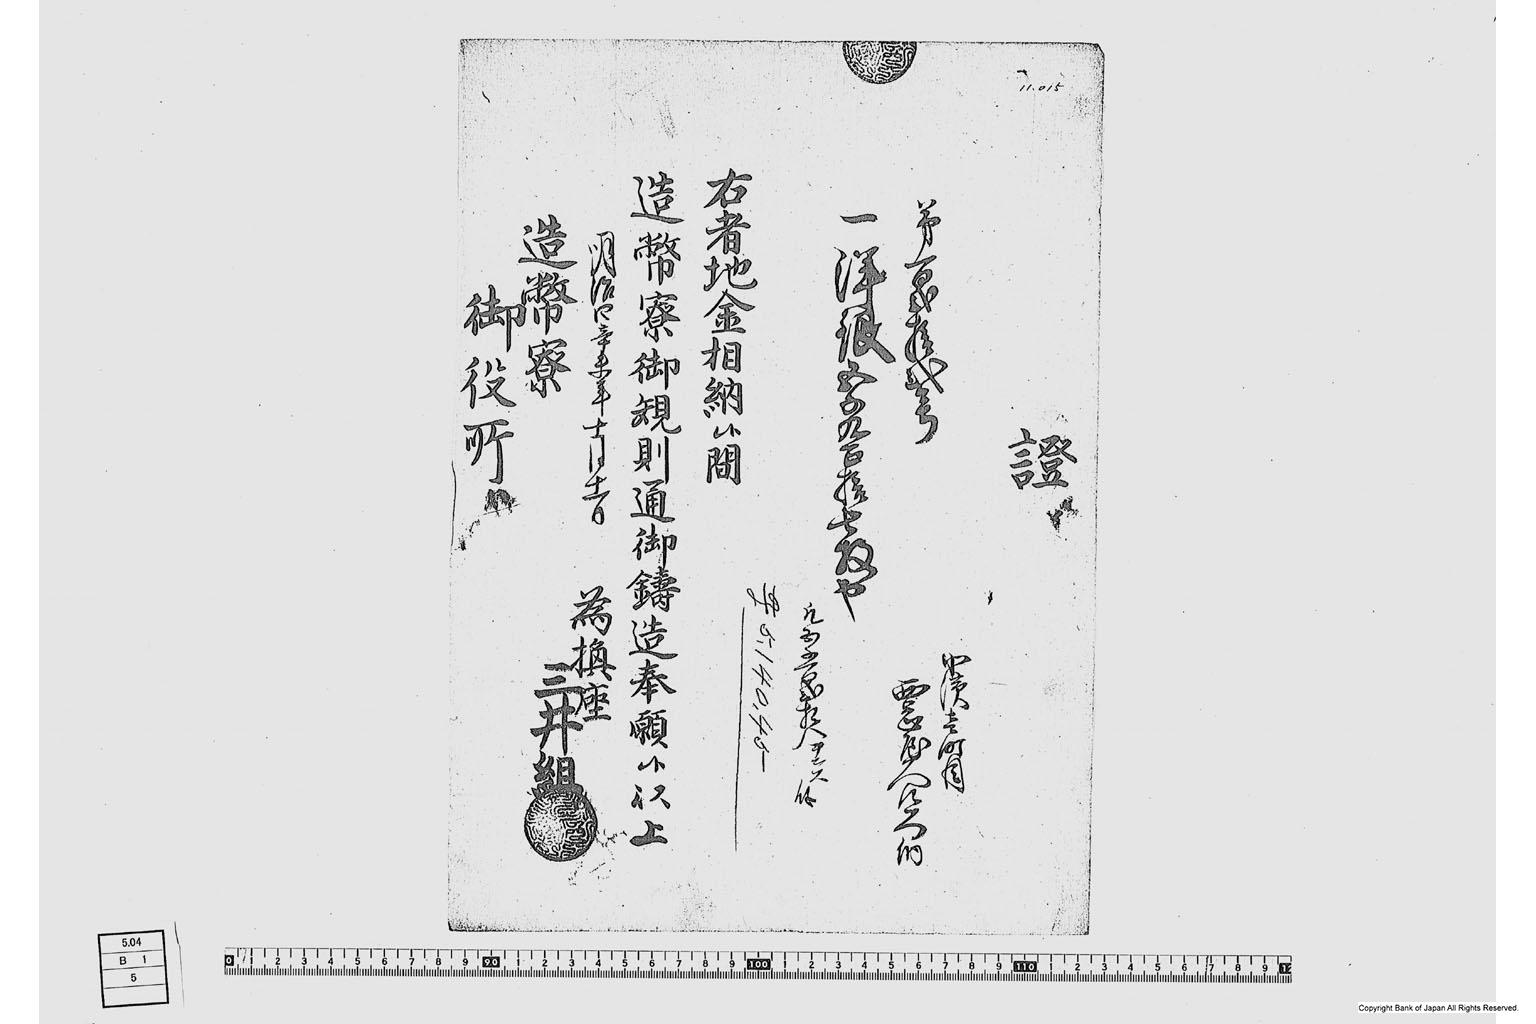 11.015
證
第百弐拾弐号
一洋銀五千九百拾七枚也
横濱壱町目
納
$5,140.45
右者地金相納候間
造幣寮御規則通御鑄造奉願候以上
明治四辛未年十月十一日
為換座
三井組
造幣寮
御役所
5.04
B 1
5
0 1 2 3 4 5 6 7 8 9 90 1 2 3 4 5 6 7 8 9 100 1 2 3 4 5 6 7 8 9 110 1 2 3 4 5 6 7 8 9 12
Copyright Bank of Japan All Rights Reserved.